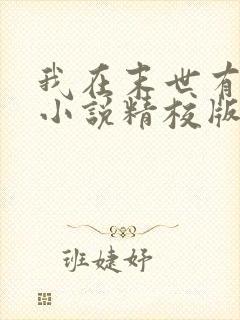 我在末世有
小说精校版
班婕妤